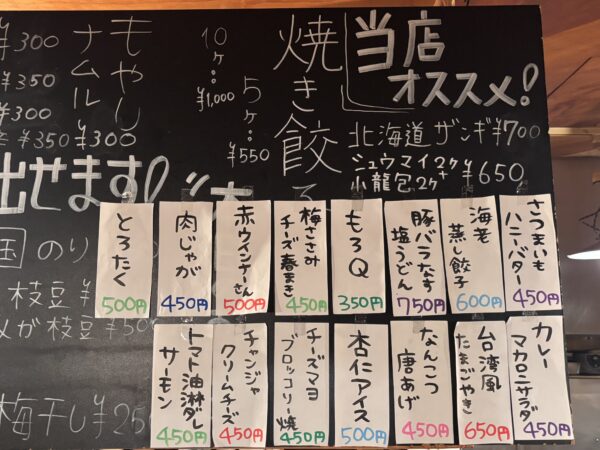 当店
オススメ!
焼き餃
10ヶ:
¥1,000
5ヶ:
¥550
北海道ザンギ¥700
シュウマイ2ヶ+
小龍包2ヶ
¥650
もやし
ナムル
¥300
¥300
¥350
¥300
¥350
出せます!
国のり
枝豆¥
が枝豆¥500
梅干し¥250
さつまいも
ハニーバター
450円
海老
蒸し餃子
600円
豚バラなす
塩うどん
750円
もろQ
350円
梅ささみ
チーズ春まき
450円
赤ウインナーさん
500円
肉じゃが
450円
とろたく
500円
カレー
マカロニサラダ
450円
台湾風
たまごやき
650円
なんこつ
唐あげ
450円
杏仁アイス
500円
チーズマヨ
ブロッコリー焼
450円
チャンジャ
クリームチーズ
450円
トマト油淋ダレ
サーモン
450円